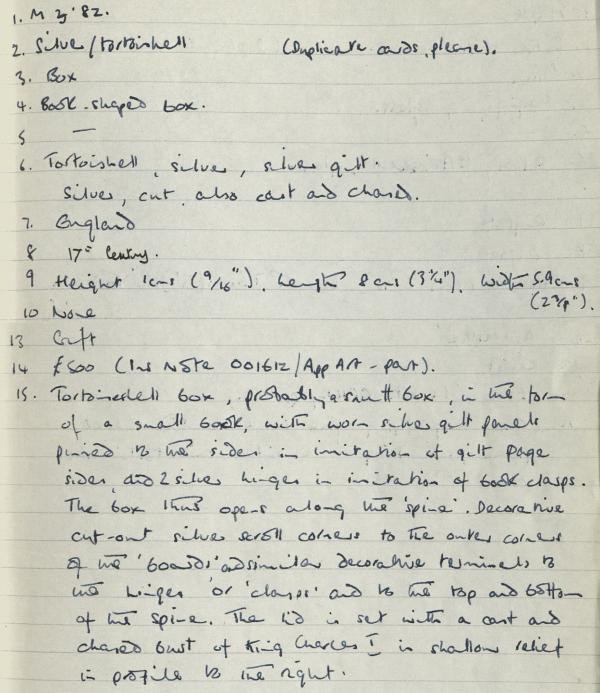 1. M 25'82.
2. Silver/tortoishell (Duplicate cards, please).
3. Box
4. Book-shaped box.
5 —
6. Tortoishell, silver, silver gilt.
Silver, cut, also cast and chased.
7. England
8 17th Century.
9 Height 1cms (9/16"). Length 8 cms (3 1/4"). Width 5.9cms
(2 3/8").
10 None
13 Gift
14 £500 (Ins Note 001612/App Art - part).
15. Tortoiseshell box, probably a snuff box, in the form
of a small book, with worn silver gilt panels
pinned to the sides in imitation of gilt page
sides, and 2 silver hinges in imitation of book clasps.
The box thus opens along the 'spine'. Decorative
cut-out silver scroll corners to the outer corners
of the 'boards' and similar decorative terminals to
the hinges or 'clasps' and to the top and bottom
of the spine. The lid is set with a cast and
chased bust of King Charles I in shallow relief
in profile to the right.